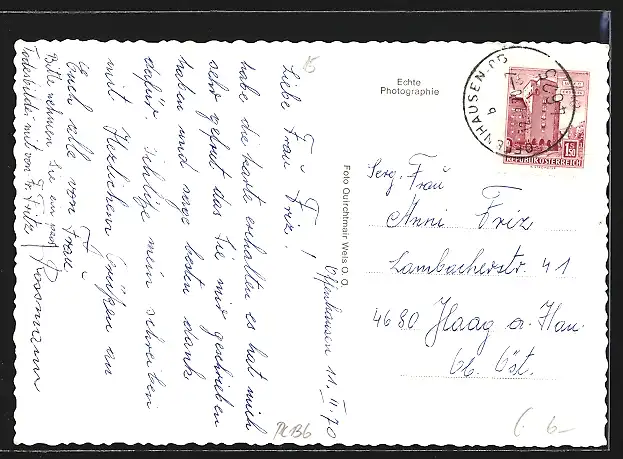 Offenhausen 11. II. 70
Liebe Frau Friz!
habe die Karte erhalten es hat mich
sehr gefreut das Sie mir geschrieben
haben und sage besten dank
dafür. schliße mein schreiben
mit Herzlichen Grüßen an
Euch alle von Frau
Rossmann
Bitte nehmen Sie ein
mit von Fr. Fritz
Echte
Photographie
Foto Quirchtmair Wels O. Ö.
Serg. Frau
Anni Friz
Lambacherstr. 41
4680 Haag a. Hau.
Ob. Öst.
OFFENHAUSEN
4625
REPUBLIK ÖSTERREICH
1.50
PK 136
6–